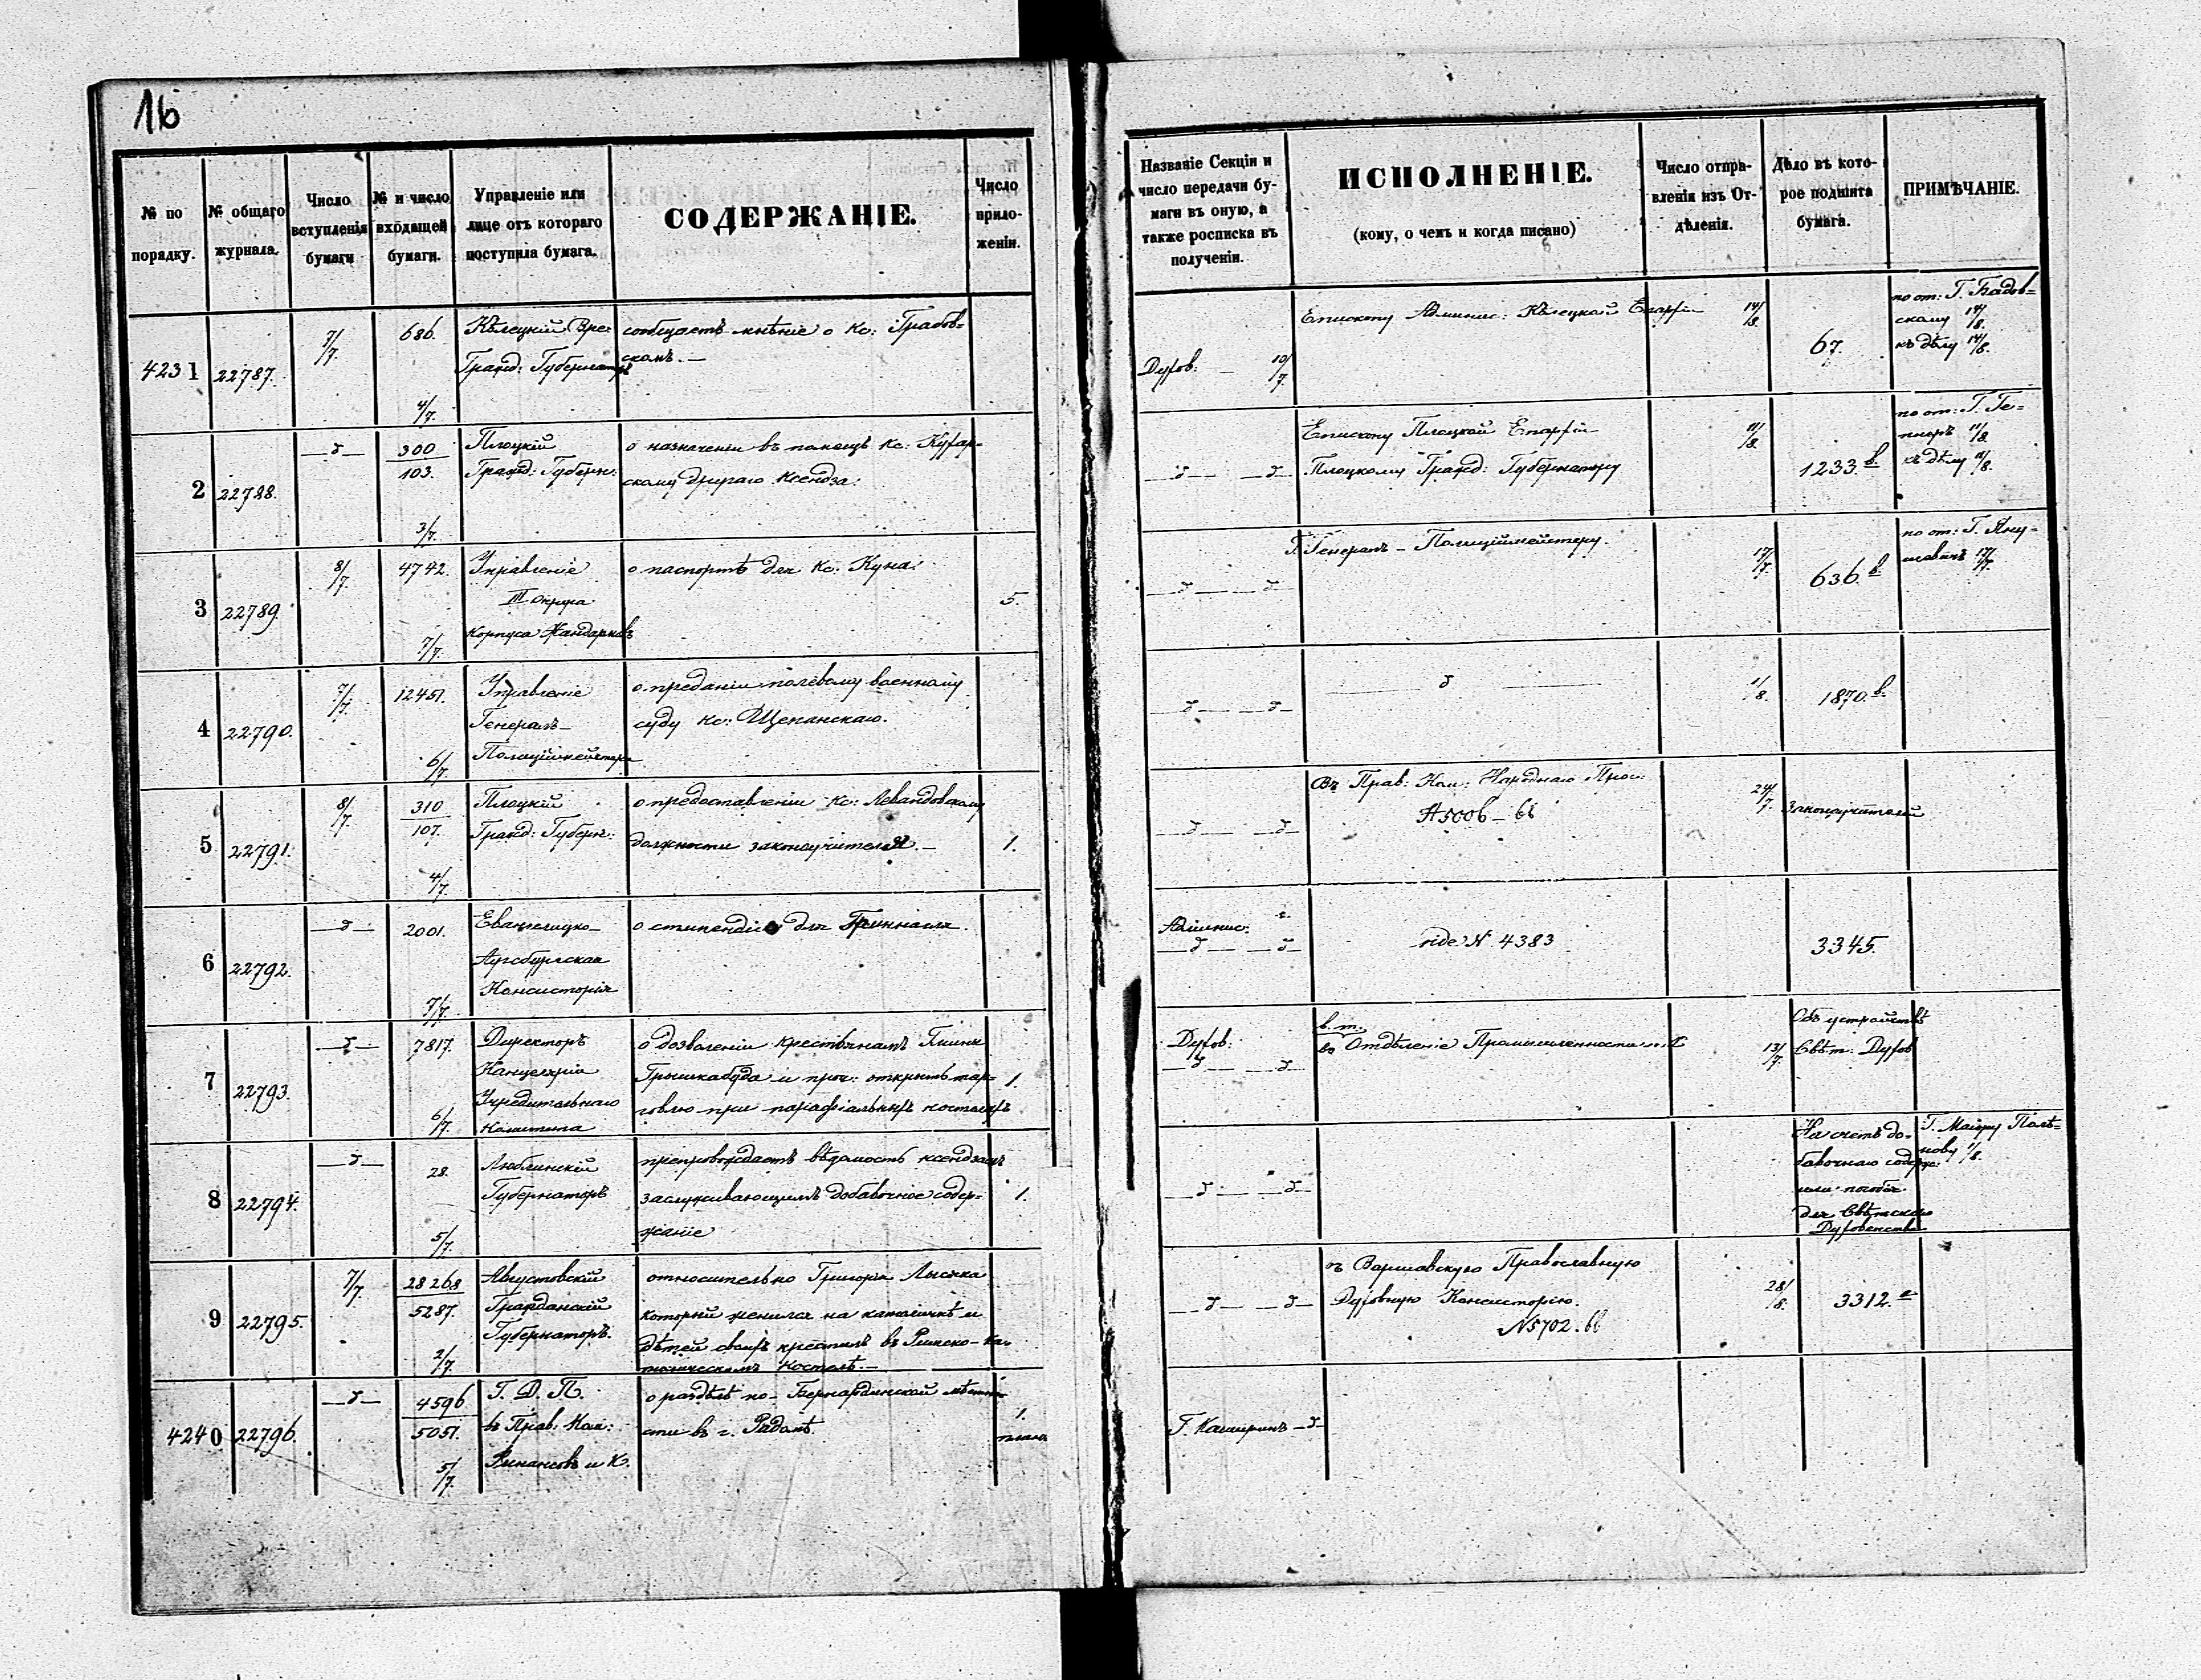 16
№ по порядку.
№ общаго журнала.
Число вступленія бумаги
№ и число входящей бумаги.
Управленіе или лице отъ котораго поступила бумага.
СОДЕРЖАНІЕ.
Число приложеніи.
Названіе Секціи и число передачи бумаги въ оную, а также росписка въ полученіи.
ИСПОЛНЕНІЕ.
(кому, о чемъ и когда писано)
Число отправленія изъ Отдѣленія.
Дѣло въ которое подшита бумага.
ПРИМѢЧАНІЕ.
4231 22787. 7/7. 686. 4/7.
Кѣлецкій
Гражд: Губернаторъ
сообщаетъ мнѣніе о Кс: Грабов=
скомъ.—
Духов: — 10/7.
Епископу Админис: Кѣлецкой Епархіи
14/8.
67.
по от: Г. Бадов=
скому 14/8.
къ дѣлу 14/8.
2 22788. —д— 300/103. 3/7.
Плоцкій
Гражд: Губерн:
о назначеніи въ помощь Кс:
скому другаго Ксендза.
—д— —д—
Епископу Плоцкой Епархіи—
Плоцкому Гражд: Губернатору
11/8.
1233.в.
по от: Г.
11/8.
къ дѣлу 11/8.
3 22789. 8/7. 4742. 7/7.
Управленіе
III Округа
Корпуса Жандармовъ
о паспортѣ для Кс: Куна.
5.
—д— —д—
Г. Генералъ-Полиціймейстеру.
17/7.
636.в.
по от: Г. Яну=
шевичъ 17/7.
4 22790. 7/7. 12451. 6/7.
Управленіе
Генералъ—
Полиціймейстера
о преданіи полевому военному
суду кс: Щепанскаго.
—д— —д—
—д—
1/8.
1870.в.
5 22791. 8/7. 310/107. 4/7.
Плоцкій
Гражд: Губерн:
о предоставленіи Кс: Левандовскому
должности законоучителя.—
1.
—д— —д—
Въ Прав: Ком: Народнаго Прос:
№5006—66
24/7.
Законоучителей
6 22792. —д— 2001. 7/7.
Евангелицко—
Аугсбургская
Консисторія
о стипендіи для
Админис:
—д— —д—
vide N 4383
3345.
7 22793. —д— 7817. 6/7.
Директоръ
Канцеляріи
Учредительнаго
Комитета
о дозволеніи крестьянамъ Гмины
Грышкабуда и проч: открыть тор=
говлю при парафіальныхъ костелахъ
1.
Духов:
—д— —д—
в. т.
въ Отдѣленіе Промышленности и Т
13/7.
Объ устройствѣ
Свѣт: Духов
8 22794. —д— 28. 5/7.
Люблинскій
Губернаторъ
препровождаетъ вѣдомость ксендзамъ
заслуживающимъ добавочное содер=
жаніе
1.
—д— —д—
На счетъ до=
бавочнаго содерж:
или пособія
для Свѣтскаго
Духовенства
Г. Маіору Полѣ=
нову 1/8.
9 22795. 7/7. 28268/5287. 2/7.
Августовскій
Гражданскій
Губернаторъ.
относительно Григорія Лысяка
который женился на католичкѣ и
дѣтей своихъ крестилъ въ Римско-Ка=
толическомъ Костелѣ.—
—д— —д—
въ Варшавскую Православную
Духовную Консисторію.
N5702.66
28/8.
3312.
4240 22796. —д— 4596/5051. 5/7.
Г. Д. П.
въ Прав: Ком:
Финансовъ и К.
о раздѣлѣ по-Бернардинской мѣстно
сти въ г. Радомѣ.
1.
планъ
Г. Каширинъ —д—